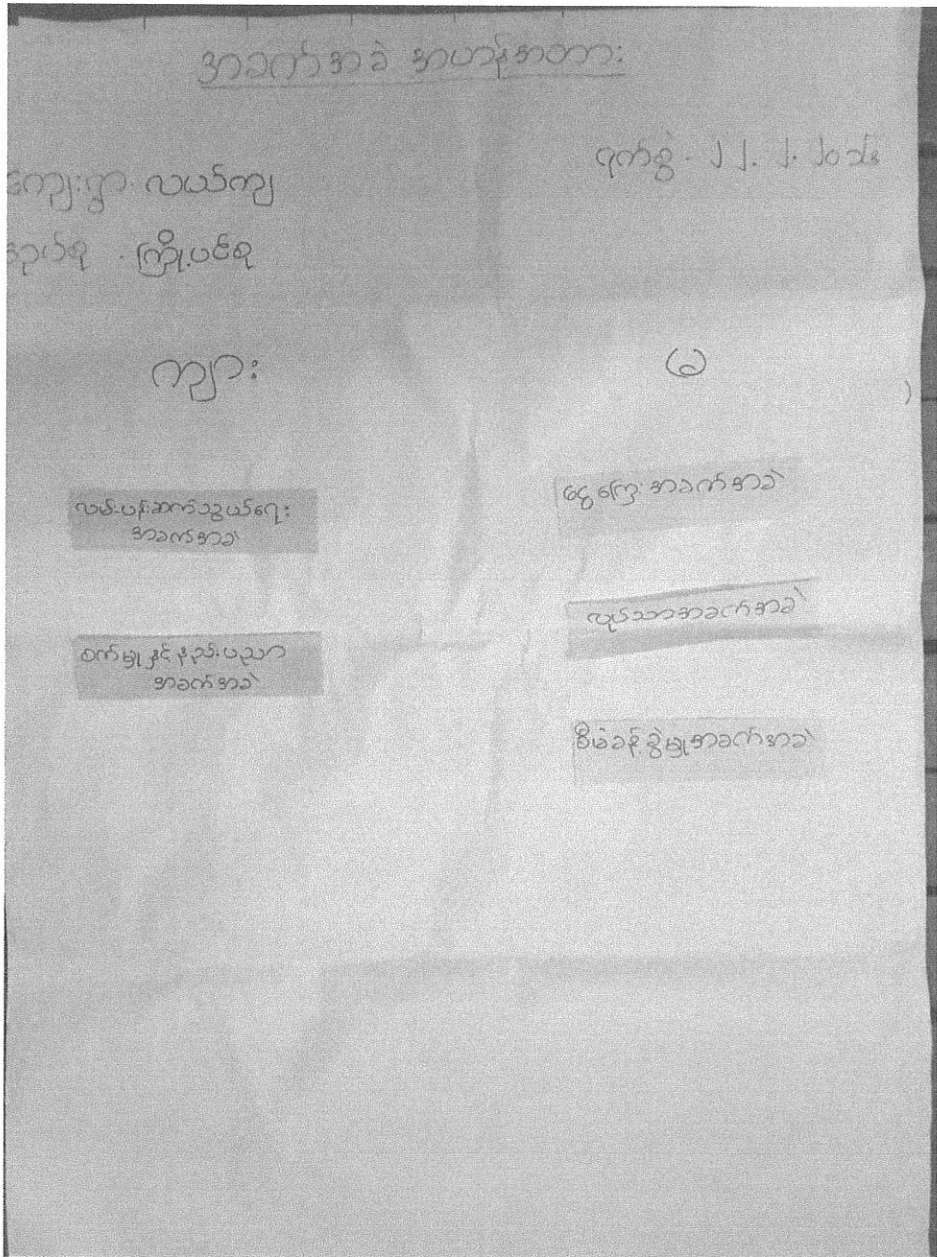 အခက်အခဲ အဟန့်အတား
ရက်စွဲ - ၂၂. ၂. ၂၀၁၆
ကျေးရွာ လယ်ကျ
အုပ်စု - ကြို့ပင်စု
ကျား
မ
လမ်းပန်းဆက်သွယ်ရေး
အခက်အခဲ
စက်မှုနှင့်နည်းပညာ
အခက်အခဲ
ငွေကြေးအခက်အခဲ
လုပ်သားအခက်အခဲ
စီမံခန့်ခွဲမှုအခက်အခဲ